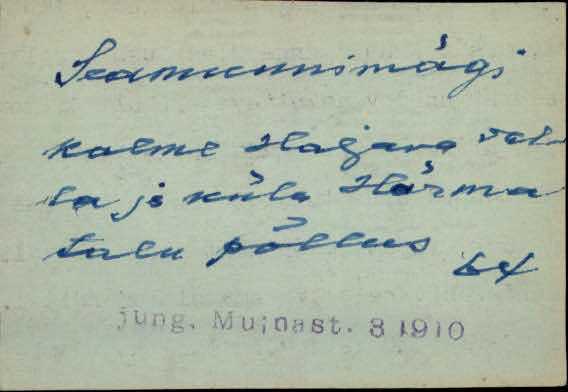 Seamunnimägi
kalme Haljava val-
la ja küla Härma
talu põllus
64
jung. Muinast. 3 1910